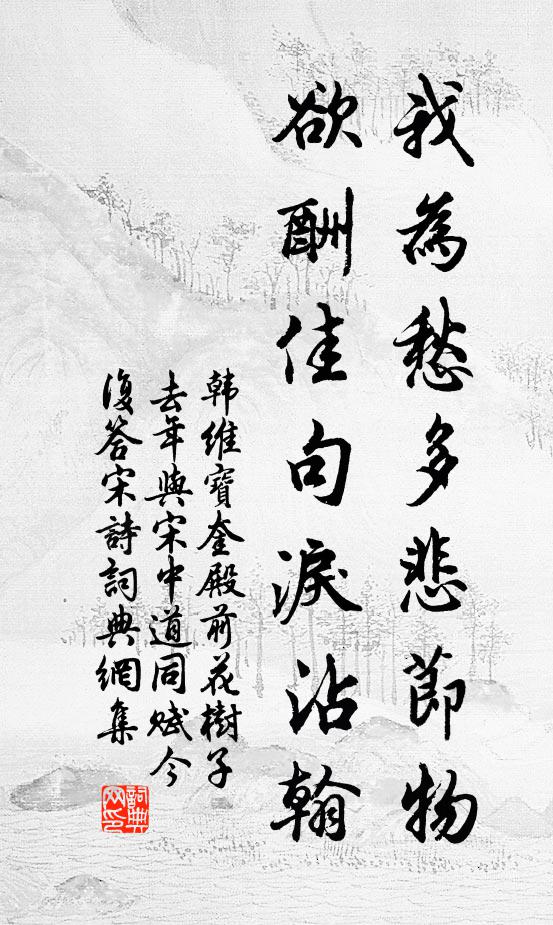 我為愁多悲節物
欲酬佳句淚沾翰
韩維寶奎殿前花樹子
去年與宋中道同赋今
復答宋詩詞典網集
詞典网印